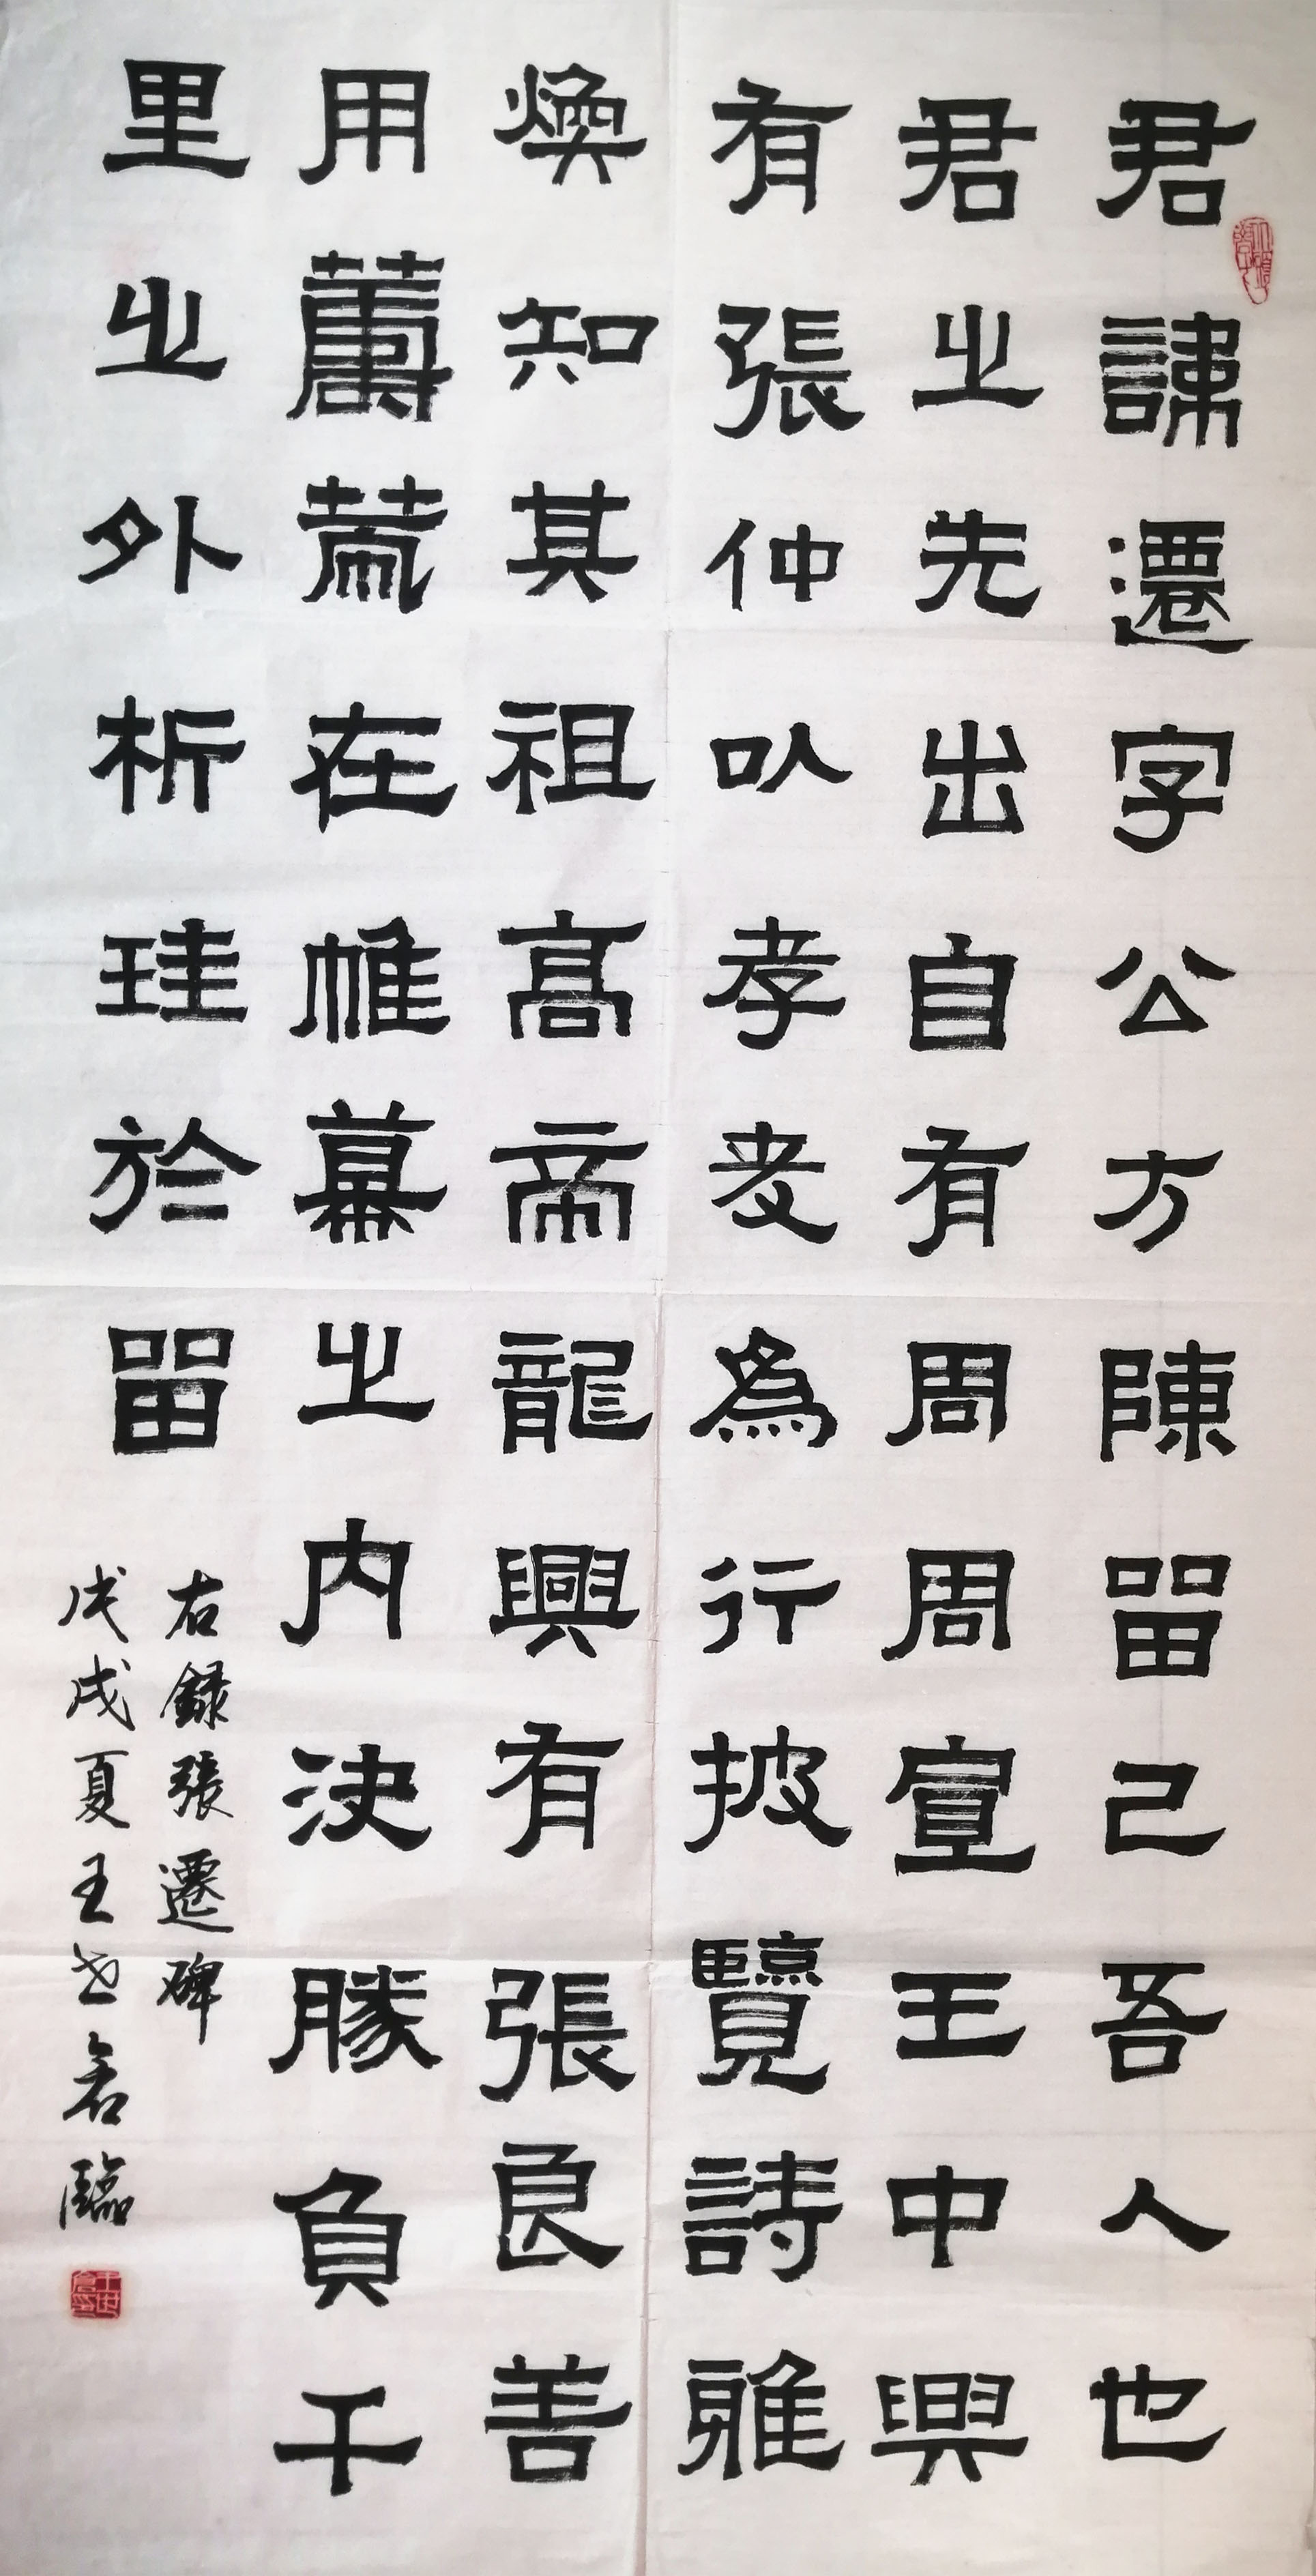 君諱遷字公方陳留己吾人也
君之先出自有周周宣王中興
有張仲以孝友為行披覽詩雅
煥知其祖高帝龍興有張良善
用籌策在帷幕之內決勝負千
里之外析珪於留
右録張遷碑
戊戌夏王世君臨